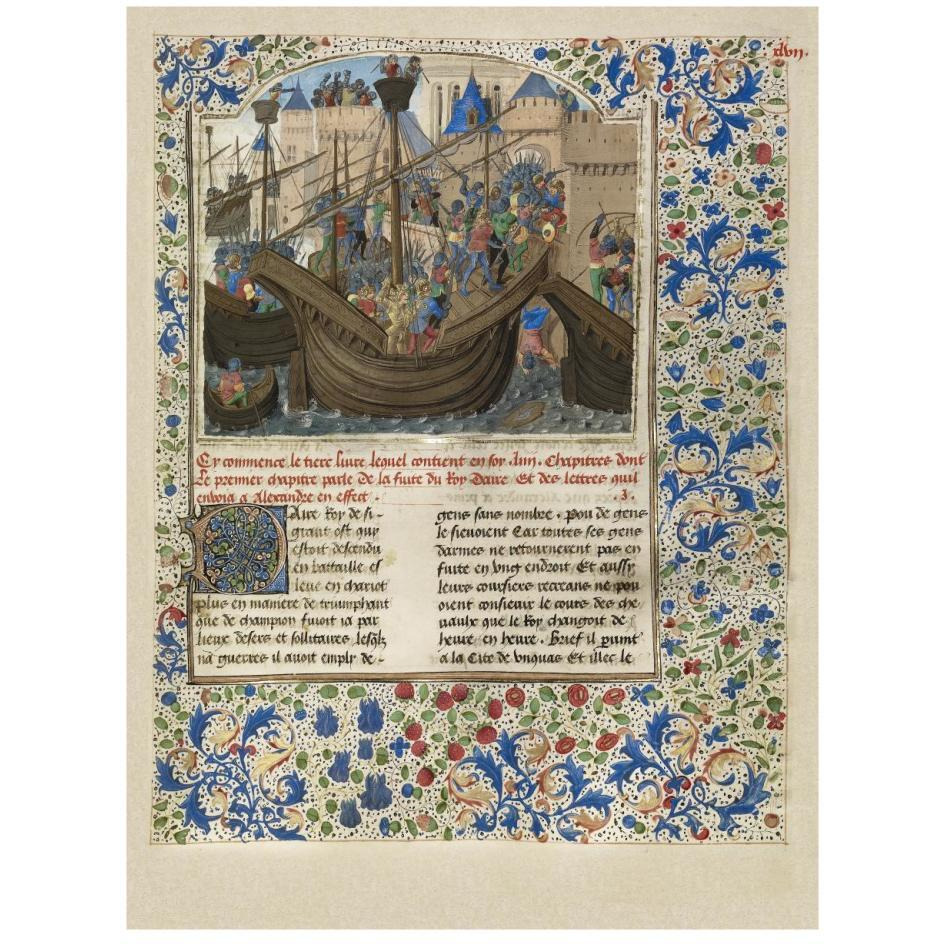 xlvii.
Cy commence le tiers livre lequel contient en soy .xxiii. Chapitres dont
Le premier chapitre parle de la fuite du Roy Daire Et des lettres quil
envoia a Alexandre en effect . . 3 .
DAire Roy de si -
grant ost qui
estoit descendu
en bataille es
leue en chariot
plus en maniere de triumphant
que de champion fuioit ia par
lieux desers et sollitaires lesqlz
na guerres il avoit emply de -
gens sans nombre . Pou de gens
le sieuoient Car toutes ses gens
darmes ne retournerent pas en
fuite en vng endroit Et aussy
leurs coursiers recreans ne pou
oient consieuir le cours des che
uaulx que le Roy changoit de
heure en heure . Brief il paruint
a la Cite de vnquas Et illec le